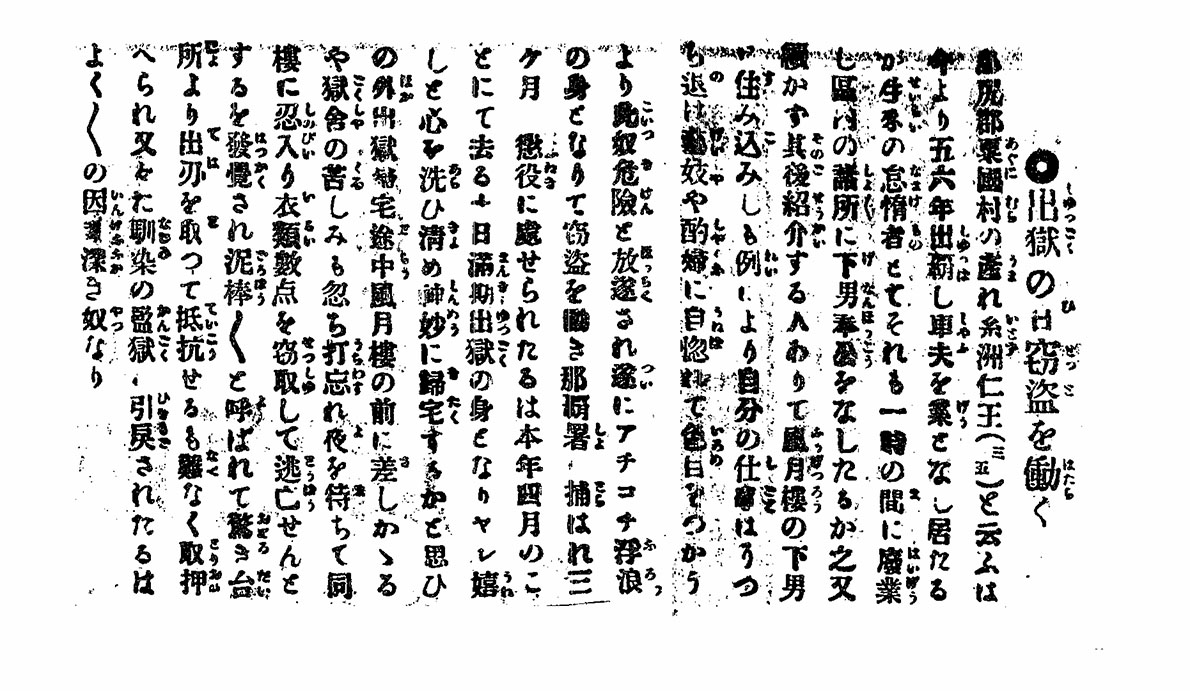 ●出獄の日窃盗を働く
島尻郡粟國村の産れ糸洲仁王(三五)と云ふは
年より五六年出覇し車夫を業となし居たる
が生來の怠惰者とてそれも一時の間に廢業
し區内の諸所に下男奉公をなしたるか之又
續かず其後紹介する人ありて風月樓の下男
住み込みしも例により自分の仕事はうつ
ち退け藝妓や酌婦に自惚れて色目をつかう
より此奴危險と放逐され遂にアチコチ浮浪
の身となりて窃盗を働き那覇署 捕はれ三
ケ月 懲役に處せられたるは本年四月のこ
とにて去る十日滿期出獄の身となりヤレ嬉
しと心を洗ひ清め神妙に歸宅するかと思ひ
の外出獄歸宅途中風月樓の前に差しかゝる
や獄舎の苦しみも忽ち打忘れ夜を待ちて同
樓に忍入り衣類數点を窃取して逃亡せんと
するを發覺され泥棒〱と呼ばれて驚き台
所より出刃を取つて抵抗せるも難なく取押
へられ又また馴染の監獄 引戻されたるは
よく〱の因 深き奴なり